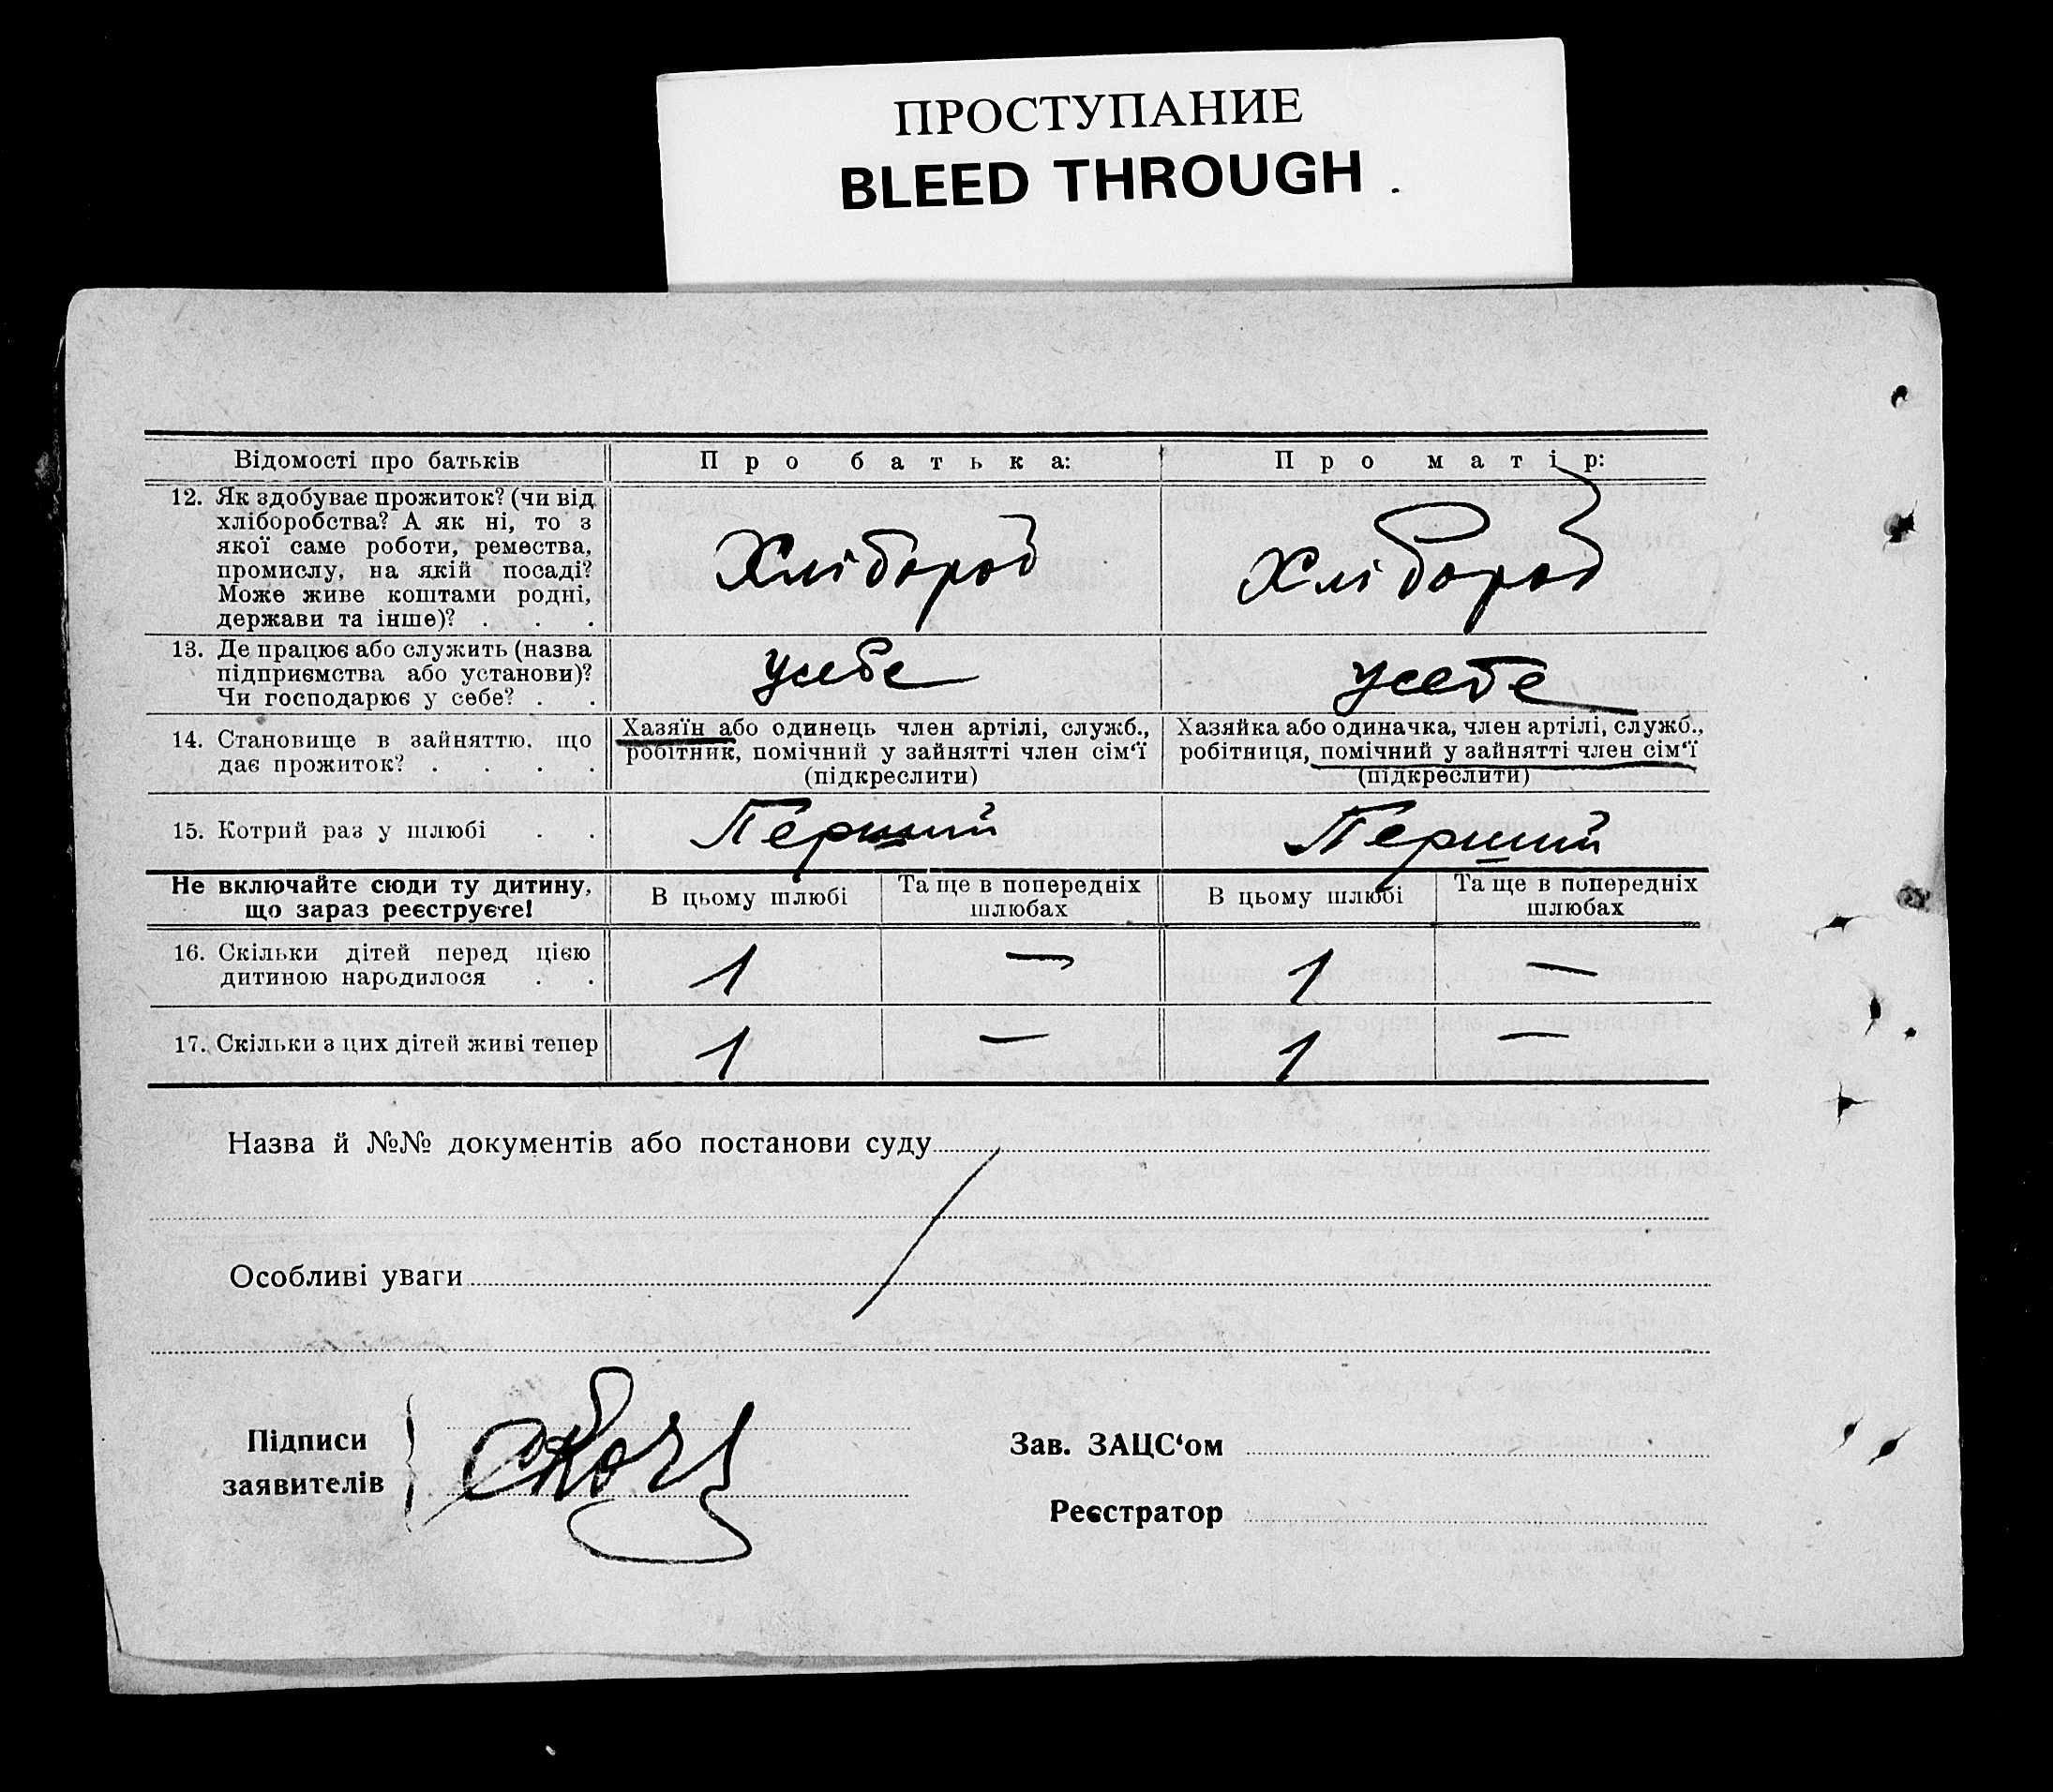 ПРОСТУПАНИЕ
BLEED THROUGH .
Відомості про батьків Про батька: Про матір:
12. Як здобуває прожиток? (чи від
хліборобства? А як ні, то з
якої саме роботи, ремества,
промислу, на якій посаді?
Може живе коштами родні,
держави та інше)? . . .
Хлібороб Хлібороб
13. Де працює або служить (назва
підприємства або установи)?
Чи господарює у себе? . .
усебе усебе
14. Становище в зайняттю, що
дає прожиток? . . . .
Хазяїн або одинець член артілі, служб.,
робітник, помічний у зайнятті член сім‘ї
(підкреслити)
Хазяйка або одиначка, член артілі, служб.,
робітниця, помічний у зайнятті член сім‘ї
(підкреслити)
15. Котрий раз у шлюбі . . Перший Перший
Не включайте сюди ту дитину,
що зараз реєструєте!
В цьому шлюбі
Та ще в попередніх
шлюбах
В цьому шлюбі
Та ще в попередніх
шлюбах
16. Скільки дітей перед цією
дитиною народилося . .
1 — 1 —
17. Скільки з цих дітей живі тепер 1 — 1 —
Назва й №№ документів або постанови суду
Особливі уваги
Підписи
заявителів
Зав. ЗАЦС‘ом
Реєстратор